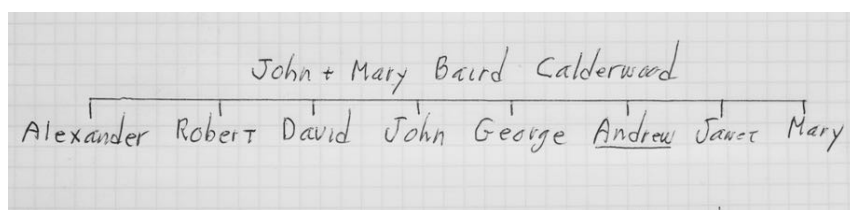 John + Mary Baird Calderwood
Alexander Robert David John George Andrew Janet Mary